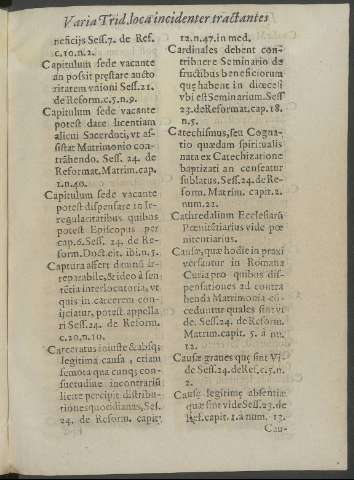 Varia Trid. loca incidenter tractantes
neficijs Sess. 7. de Ref.
c. 10. n. 2.
Capitulum sede vacante
an possit pręstare aucto
ritatem vnioni Sess. 21.
de Reform. c. 5. n. 9.
Capitulum sede vacante
potest dare licentiam
alicui Sacerdoti, vt as-
sistat Matrimonio con-
trahẽdo. Sess. 24. de
Reformat. Matrim. cap.
1. n. 40.
Capitulum sede vacante
potest dispensare in Ir-
regularitatibus quibus
potest Episcopus per
cap. 6. Sess. 24. de Re-
form. Doct. cit. ibi. n. 5.
Captura affert damnũ ir-
reparabile, & ideo à sen-
tẽtia interlocutoria, vt
quis in carcerem con-
ijciatur, potest appella
ri Sess. 24. de Reform.
c. 20. n. 10.
Carceratus iniuste & absq;
legitima causa, etiam
remota quacunq; con-
suetudine incontrariũ
licite percipit distribu-
tiones quotidianas, Ses.
24. de Reform. capit.
12. n. 47. in med.
Cardinales debent con-
tribuere Seminario de
fructibus beneficiorum
quę habent in diœcesi
vbi est Seminarium. Sess
23. de Reformat. cap. 18.
n. 5.
Catechismus, seu Cogna-
tio quædam spiritualis
nata ex Catechizatione
baptizati an censeatur
sublatus. Sess. 24. de Re-
form. Matrim. capit. 2.
num. 22.
Cathredalium Ecclesiarũ
Pœnitẽtiarius vide pœ
nitentiarius.
Causæ, quæ hodie in praxi
versantur in Romana
Curia pro quibus dis-
pensationes ad contra
henda Matrimonia cõ-
ceduntur quales sint vi
de. Sess. 24. de Reform.
Matrim. capit. 5. à nu.
12.
Causæ graues quę sint Vi-
de Sess. 24. de Ref. c. 5. n.
2.
Causę legitimę absentiæ
quæ sint vide Sess. 23. de
Ref. capit. 1. à num. 13.
Cau-